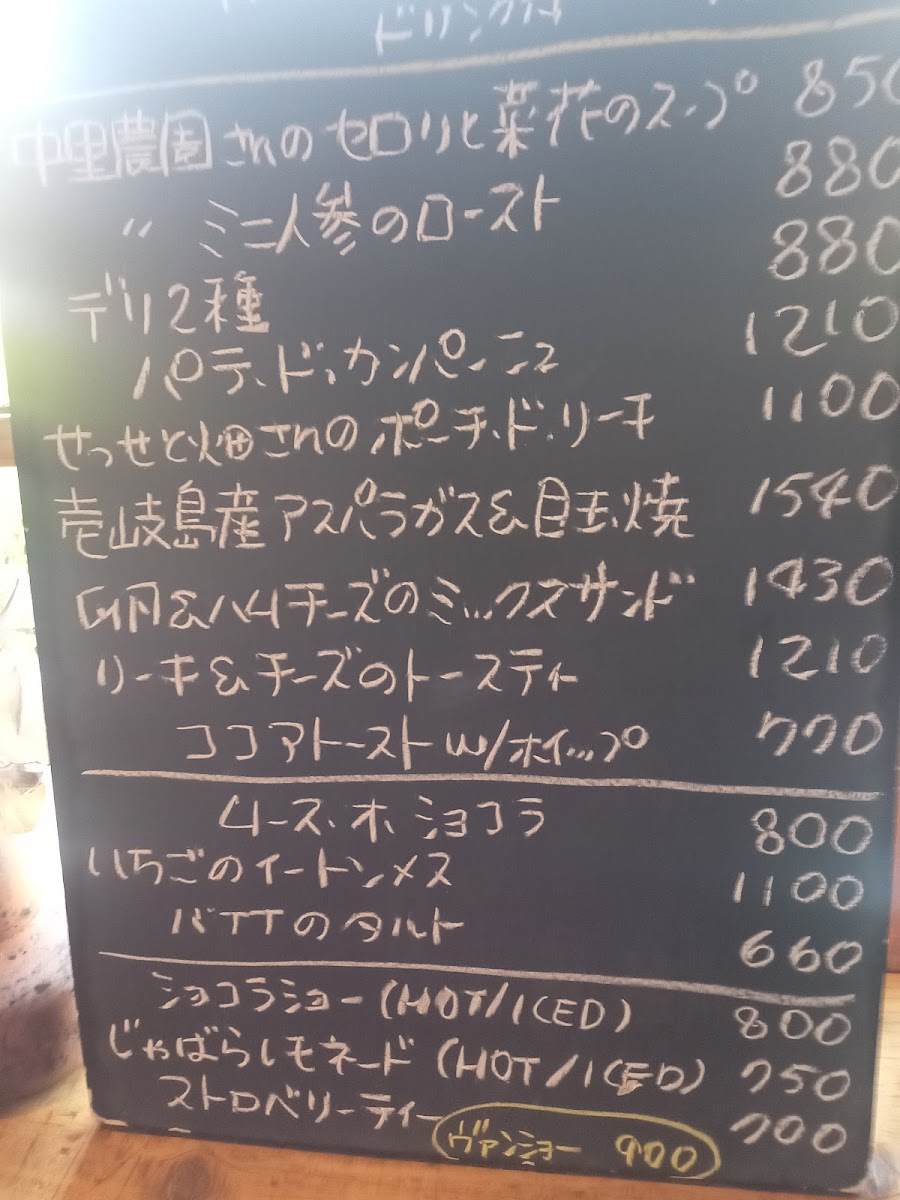 ドリンク付
中里農園さんのセロリと菜花のスープ 850
〃 ミニ人参のロースト 880
デリ2種 880
パテ・ド・カンパーニュ 1210
せっせと畑さんのポーチ・ド・リーキ 1100
壱岐島産アスパラガス&目玉焼 1540
卵&ハムチーズのミックスサンド 1430
リーキ&チーズのトースティ 1210
ココアトーストw/ホイップ 770
ムース・オ・ショコラ 800
いちごのイートンメス 1100
バTTのタルト 660
ショコラショー(HOT/ICED) 800
じゃばらレモネード(HOT/ICED) 750
ストロベリーティー 700
ヴァンショー 900